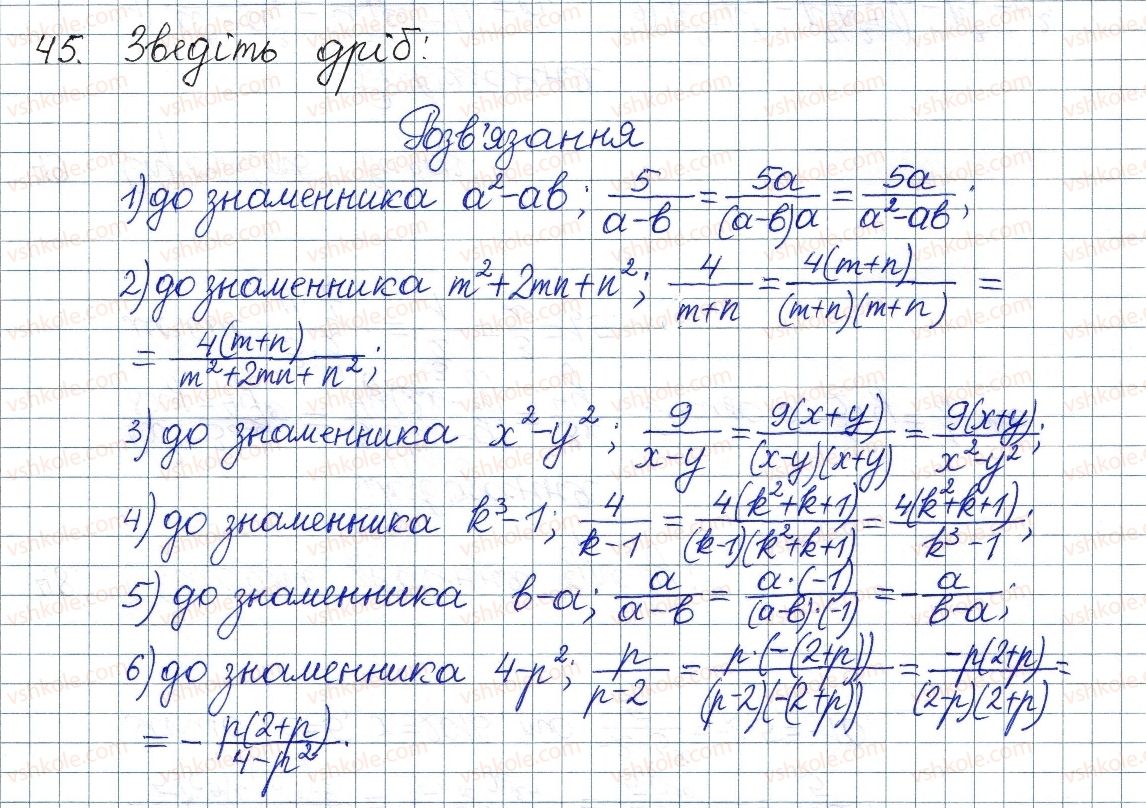 45. Зведіть дріб:
Розв'язання
1) до знаменника a²-ab; 5/(a-b) = 5a/((a-b)a) = 5a/(a²-ab);
2) до знаменника m²+2mn+n²; 4/(m+n) = 4(m+n)/((m+n)(m+n)) =
= 4(m+n)/(m²+2mn+n²);
3) до знаменника x²-y²; 9/(x-y) = 9(x+y)/((x-y)(x+y)) = 9(x+y)/(x²-y²);
4) до знаменника k³-1; 4/(k-1) = 4(k²+k+1)/((k-1)(k²+k+1)) = 4(k²+k+1)/(k³-1);
5) до знаменника b-a; a/(a-b) = a·(-1)/((a-b)·(-1)) = -a/(b-a);
6) до знаменника 4-p²; p/(p-2) = p·(-(2+p))/((p-2)(-(2+p))) = -p(2+p)/((2-p)(2+p)) =
= -p(2+p)/(4-p²).